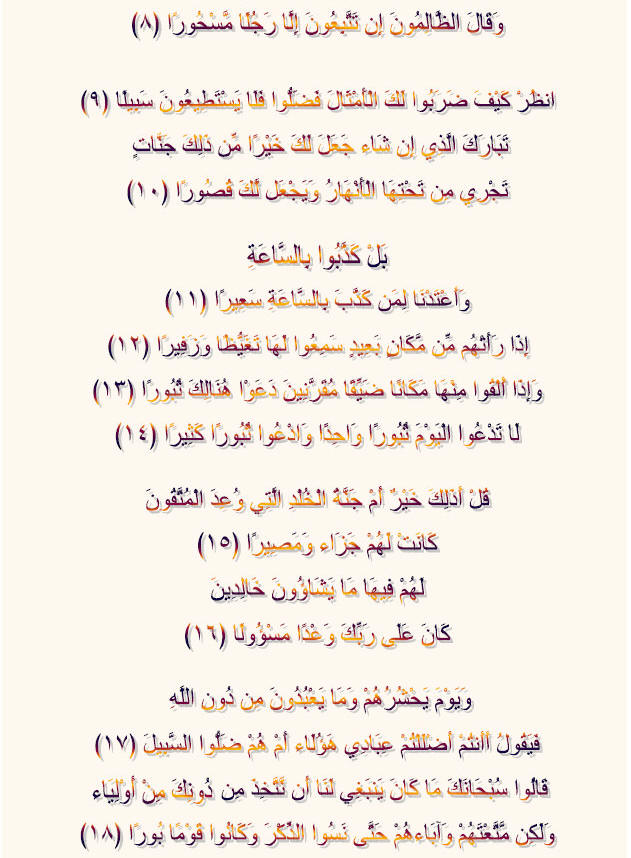 وَقَالَ الظَّالِمُونَ إِن تَتَّبِعُونَ إِلَّا رَجُلًا مَّسْحُورًا (٨)
انظُرْ كَيْفَ ضَرَبُوا لَكَ الْأَمْثَالَ فَضَلُّوا فَلَا يَسْتَطِيعُونَ سَبِيلًا (٩)
تَبَارَكَ الَّذِي إِن شَاء جَعَلَ لَكَ خَيْرًا مِّن ذَلِكَ جَنَّاتٍ
تَجْرِي مِن تَحْتِهَا الْأَنْهَارُ وَيَجْعَل لَّكَ قُصُورًا (١٠)
بَلْ كَذَّبُوا بِالسَّاعَةِ
وَأَعْتَدْنَا لِمَن كَذَّبَ بِالسَّاعَةِ سَعِيرًا (١١)
إِذَا رَأَتْهُم مِّن مَّكَانٍ بَعِيدٍ سَمِعُوا لَهَا تَغَيُّظًا وَزَفِيرًا (١٢)
وَإِذَا أُلْقُوا مِنْهَا مَكَانًا ضَيِّقًا مُقَرَّنِينَ دَعَوْا هُنَالِكَ ثُبُورًا (١٣)
لَا تَدْعُوا الْيَوْمَ ثُبُورًا وَاحِدًا وَادْعُوا ثُبُورًا كَثِيرًا (١٤)
قُلْ أَذَلِكَ خَيْرٌ أَمْ جَنَّةُ الْخُلْدِ الَّتِي وُعِدَ الْمُتَّقُونَ
كَانَتْ لَهُمْ جَزَاء وَمَصِيرًا (١٥)
لَهُمْ فِيهَا مَا يَشَاؤُونَ خَالِدِينَ
كَانَ عَلَى رَبِّكَ وَعْدًا مَسْؤُولًا (١٦)
وَيَوْمَ يَحْشُرُهُمْ وَمَا يَعْبُدُونَ مِن دُونِ اللَّهِ
فَيَقُولُ أَأَنتُمْ أَضْلَلْتُمْ عِبَادِي هَؤُلَاء أَمْ هُمْ ضَلُّوا السَّبِيلَ (١٧)
قَالُوا سُبْحَانَكَ مَا كَانَ يَنبَغِي لَنَا أَن نَّتَّخِذَ مِن دُونِكَ مِنْ أَوْلِيَاء
وَلَكِن مَّتَّعْتَهُمْ وَآبَاءهُمْ حَتَّى نَسُوا الذِّكْرَ وَكَانُوا قَوْمًا بُورًا (١٨)